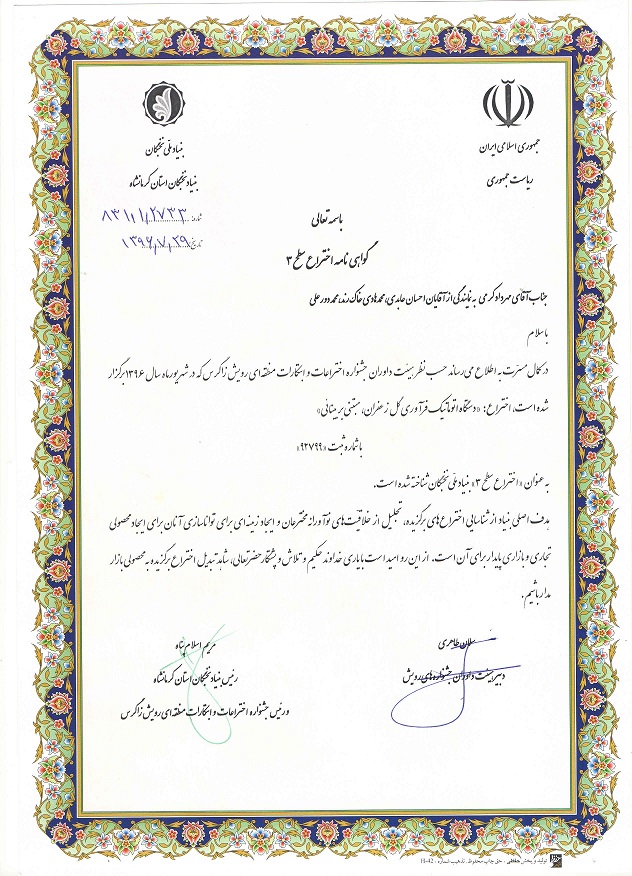 جمهوری اسلامی ایران
ریاست جمهوری
بنیاد ملی نخبگان
بنیاد نخبگان استان کرمانشاه
شماره ۸۳/۱/۱/۲۷۳۳
تاریخ ۱۳۹۶/۷/۲۹
باسمه تعالی
گواهی نامه اختراع سطح ۳
جناب آقای مهرداد کرمی به نمایندگی از آقایان احسان عابدی، محمدهادی خاک رند، محمد دور علی
با سلام
در کمال مسرت به اطلاع می‌رساند حسب نظر هیئت داوران جشنواره اختراعات و ابتکارات منطقه‌ای رویش زاگرس که در شهریورماه سال ۱۳۹۶ برگزار
شده است، اختراع: «دستگاه اتوماتیک فرآوری گل زعفران، مبتنی بر بینائی»
با شماره ثبت «۹۲۷۹۹»
به عنوان «اختراع سطح ۳» بنیاد ملی نخبگان شناخته شده است.
هدف اصلی بنیاد از شناسایی اختراع‌های برگزیده، تجلیل از خلاقیت‌های نوآورانه مخترعان و ایجاد زمینه‌ای برای توانا‌سازی آنان برای ایجاد محصولی
تجاری و بازاری پایدار برای آن است. از این رو امید است با یاری خداوند حکیم و تلاش و پشتکار حضرتعالی، شاهد تبدیل اختراع برگزیده به محصولی بازار
مدار باشیم.
سلمان طاهری
دبیر هیئت داوران جشنواره‌های رویش
مریم اسلام پناه
رئیس بنیاد نخبگان استان کرمانشاه
و رئیس جشنواره اختراعات و ابتکارات منطقه‌ای رویش زاگرس
تولید و پخش حقیقی . حق چاپ محفوظ. تذهیب شماره . H-42